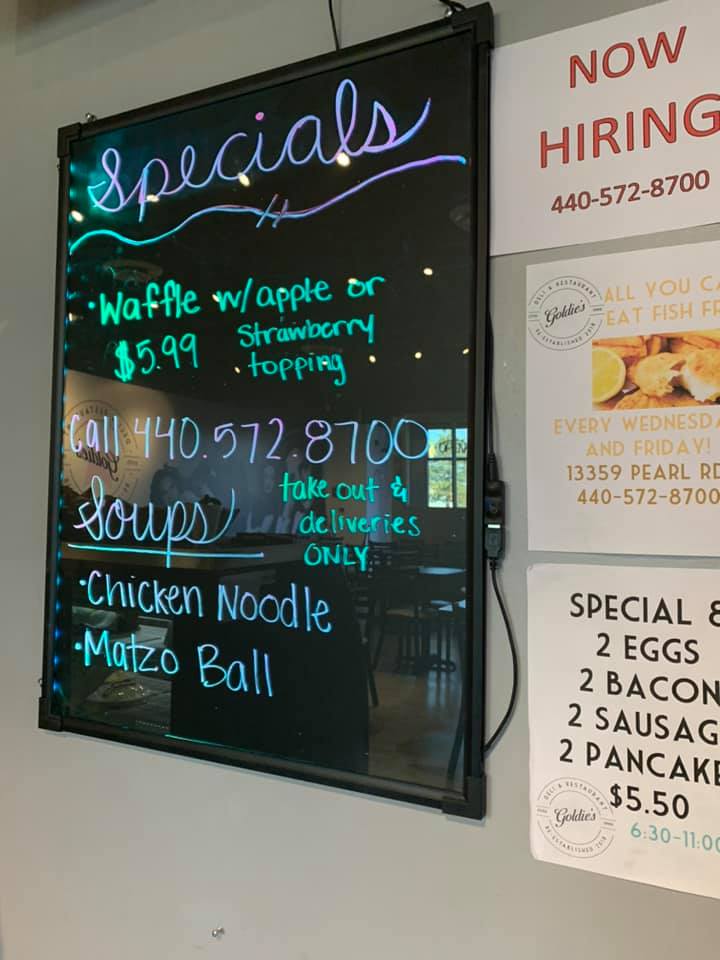 Specials
• Waffle w/ apple or
$5.99 Strawberry
topping
Call 440.572.8700
Soups
take out &
deliveries
ONLY
• Chicken Noodle
• Matzo Ball
NOW
HIRING
440-572-8700
DELI & RESTAURANT
Goldie's
RE-ESTABLISHED 2018
ALL YOU CA
EAT FISH FR
EVERY WEDNESDA
AND FRIDAY!
13359 PEARL RD
440-572-8700
SPECIAL &
2 EGGS
2 BACON
2 SAUSAG
2 PANCAKE
$5.50
6:30-11:00
DELI & RESTAURANT
Goldie's
RE-ESTABLISHED 2018